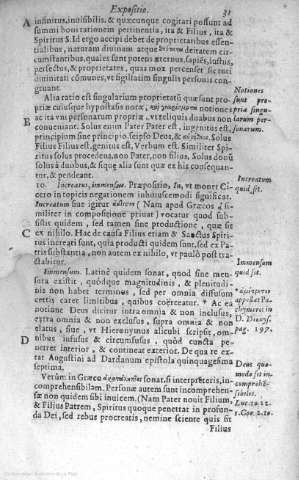 Expositio. 31
A infinitus, inuisibilis, & quæcunque cogitari possunt ad
summi boni rationem pertinentia, ita & Filius, ita &
Spiritus S. Id ergo accipi debet de proprietatibus essen-
tialibus, naturam diuinam atque deitatem cir-
cumstantibus, quales sunt potens æternus, sapiés, iustus,
perfectus, & proprietates, quas mox percenset sic tueri
diuinitati cómunes, vt sigillatim singulis personis con-
gruant.
Notiones
sunt pro-
priæ singu-
larum per-
sonarum.
Alia ratio est singularium proprietatú quæ sunt pro-
priæ cuiusque hypostasis notæ,
B ac ita vni personatum propriæ, vt reliquis duabus non
conueniant. Solus enim Pater Pater est, ingenitus est,
principium sine principio, seipso Deus, &
Filius Filius est, genitus est, Verbum est. Similiter Spiri-
tus solus procedens, non Pater, non filius. Solus donũ
solus à duobus, & siqua alia sunt quæ ex his consequan-
tur, & pendeant.
Increatum
quid sit.
10. Increatus, immensus. Præpositio, In, vt monet Ci-
cero in topicis negationem in huiusmodi significat.
Increatum siue igitur (Nam apud Græcos á si-
militer in compositione priuat) vocatur quod subsi-
stit quidem, sed tamen sine productione, quæ fit
C ex nihilo. Hac de causa Filius etiam & Sanctus Spiri-
tus increati sunt, quia producti quidem sunt, sed ex Pa-
tris substantia, non autem ex nihilo, vt paulò post tra-
ctabitur.
Immensum
quid sit.
Immensum. Latinè quidem sonat, quod sine men-
sura existit, quódque magnitudinis, & plenitudi-
nis non habet terminos, sed per omnia diffusum
certis caret limitibus, quibus coërceatur. * Ac ea
appellat Pa-
chymeres in
D. Dionys.
pag. 197.
notione Deus dicitur intra omnia & non inclusus,
extra omnia & non exclusus, supra omnia & non
elatus, siue, vt Hieronymus alicubi scripsit, om-
D nibus infusus & circumfusus, quòd cuncta pe-
netret interior, & contineat exterior. De qua re ex-
tat Augustini ad Dardanum epistola quinquagesima
septima.
Deus quo-
modo sit in-
comprehē-
sibilis.
Luc. 10.22.
1. Cor. 2.10.
Verùm in Græco sonat, si interpreteris, in-
comprehensibilem. Personæ autem sunt incomprehen-
sæ non quidem sibi inuicem. (Nam Pater nouit Filium,
& Filius Patrem, Spiritus quoque penetrat in profun-
da Dei, sed rebus procreatis, nemine sciente quis sit
Filius